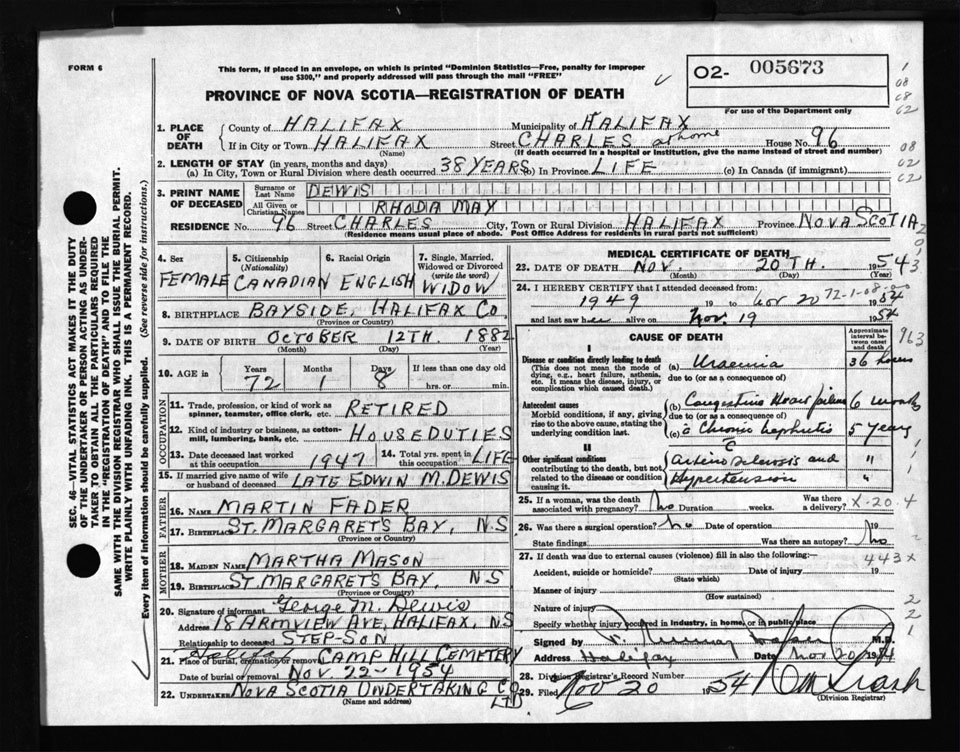 FORM 6
This form, if placed in an envelope, on which is printed "Dominion Statistics—Free, penalty for improper
use $300," and properly addressed will pass through the mail "FREE"
O2- 005673
For use of the Department only
PROVINCE OF NOVA SCOTIA—REGISTRATION OF DEATH
1. PLACE OF DEATH
County of HALIFAX Municipality of HALIFAX
If in City or Town HALIFAX Street CHARLES at home House No. 96
(Name) (If death occurred in a hospital or institution, give the name instead of street and number)
2. LENGTH OF STAY (in years, months and days)
(a) In City, Town or Rural Division where death occurred 38 YEARS (b) In Province LIFE (c) In Canada (if immigrant)
3. PRINT NAME OF DECEASED
Surname or Last Name DEWIS
All Given or Christian Names RHODA MAY
RESIDENCE No. 96 Street CHARLES City, Town or Rural Division HALIFAX Province NOVA SCOTIA
(Residence means usual place of abode. Post Office Address for residents in rural parts not sufficient)
4. Sex FEMALE
5. Citizenship (Nationality) CANADIAN
6. Racial Origin ENGLISH
7. Single, Married, Widowed or Divorced (write the word) WIDOW
8. BIRTHPLACE BAYSIDE, HALIFAX CO.
(Province or Country)
9. DATE OF BIRTH OCTOBER 12TH. 1882
(Month) (Day) (Year)
10. AGE in Years 72 Months 1 Days 8 If less than one day old hrs. or min.
OCCUPATION
11. Trade, profession, or kind of work as spinner, teamster, office clerk, etc. RETIRED
12. Kind of industry or business, as cotton-mill, lumbering, bank, etc. HOUSEDUTIES
13. Date deceased last worked at this occupation 1947
14. Total yrs. spent in this occupation LIFE
15. If married give name of wife or husband of deceased LATE EDWIN M. DEWIS
FATHER
16. NAME MARTIN FADER
17. BIRTHPLACE ST. MARGARETS BAY, N.S
(Province or Country)
MOTHER
18. MAIDEN NAME MARTHA MASON
19. BIRTHPLACE ST. MARGARETS BAY, NS
(Province or Country)
20. Signature of informant George M. Dewis
Address 18 ARMVIEW AVE, HALIFAX, N.S
Relationship to deceased STEP-SON
21. Place of burial, cremation or removal Halifax CAMP HILL CEMETERY
Date of burial or removal NOV 22-1954
22. UNDERTAKER NOVA SCOTIA UNDERTAKING CO LTD
(Name and address)
MEDICAL CERTIFICATE OF DEATH
23. DATE OF DEATH NOV. 20TH. 1954
(Month) (Day)
24. I HEREBY CERTIFY that I attended deceased from:
1949 19 to Nov 20 1954
72-1-08-00
and last saw her alive on Nov. 19 1954
CAUSE OF DEATH
Approximate interval between onset and death
I
Disease or condition directly leading to death
(This does not mean the mode of dying, e.g., heart failure, asthenia, etc. It means the disease, injury, or complication which caused death.)
(a) Uraemia 36 hours
due to (or as a consequence of)
Antecedent causes
Morbid conditions, if any, giving rise to the above cause, stating the underlying condition last.
(b) Congestive Heart failure 6 months
due to (or as a consequence of)
(c) Chronic nephritis 5 years
II
Other significant conditions contributing to the death, but not related to the disease or condition causing it.
arteriosclerosis and "
Hypertension "
25. If a woman, was the death associated with pregnancy? No Duration weeks. Was there a delivery? X-20.4
26. Was there a surgical operation? No Date of operation 19
State findings Was there an autopsy? No
27. If death was due to external causes (violence) fill in also the following:— 443x
Accident, suicide or homicide? Date of injury 19
(State which)
Manner of injury
(How sustained)
Nature of injury
Specify whether injury occurred in industry, in home, or in public place
Signed by M.D.
Address Halifax Date Nov 20 1954
28. Division Registrar's Record Number
29. Filed Nov 20 1954
(Division Registrar)
SEC. 46—VITAL STATISTICS ACT MAKES IT THE DUTY
OF THE UNDERTAKER OR PERSON ACTING AS UNDER-
TAKER TO OBTAIN ALL THE PARTICULARS REQUIRED
IN THE "REGISTRATION OF DEATH" AND TO FILE THE
SAME WITH THE DIVISION REGISTRAR WHO SHALL ISSUE THE BURIAL PERMIT.
WRITE PLAINLY WITH UNFADING INK. THIS IS A PERMANENT RECORD.
Every item of information should be carefully supplied. (See reverse side for instructions.)